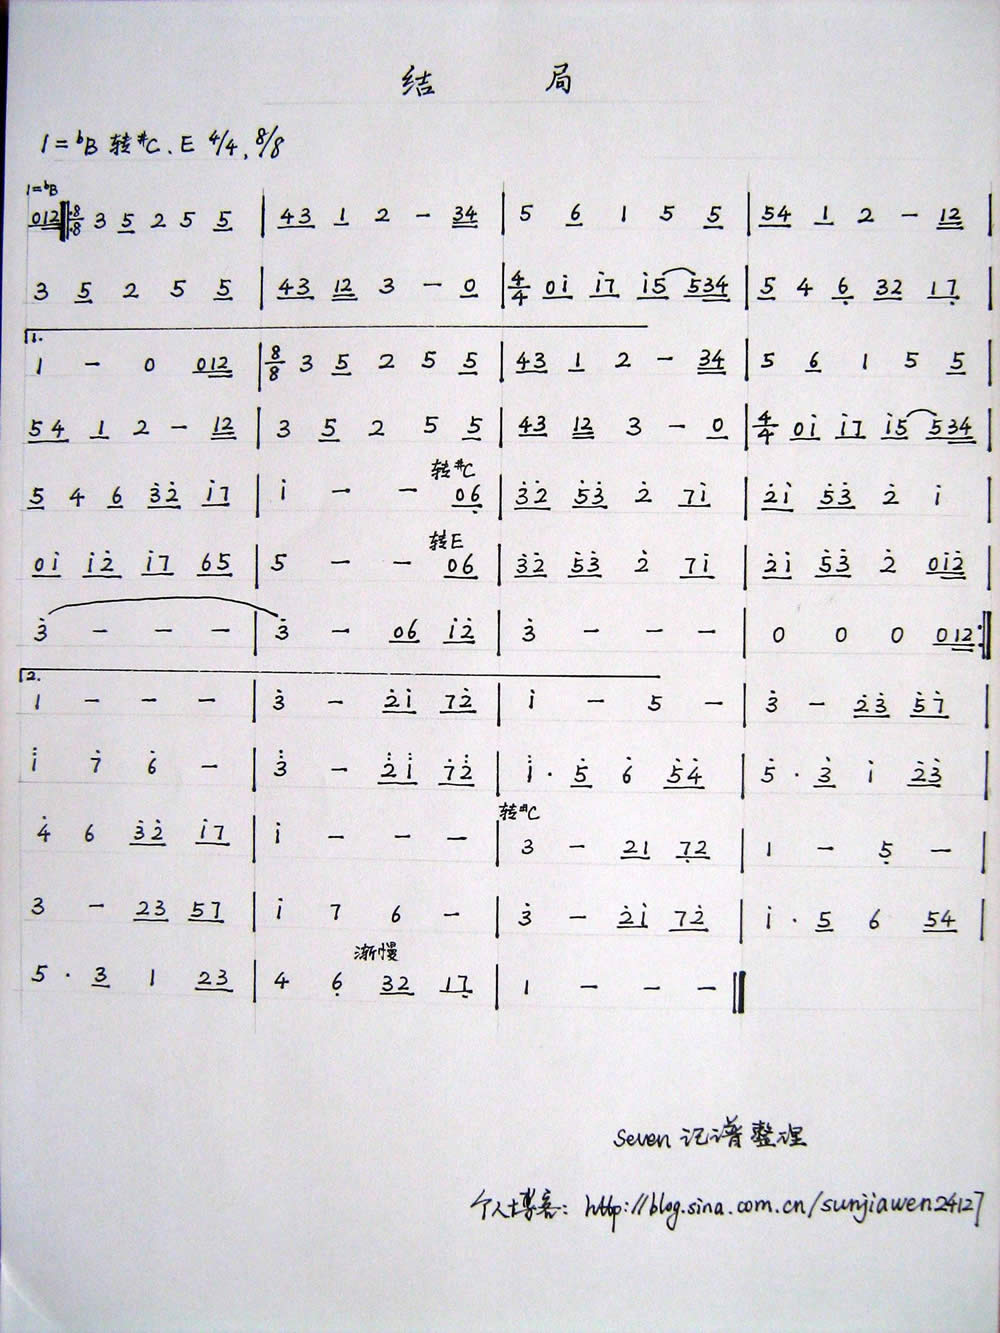 结 局
1=bB 转#C、E 4/4, 8/8
1=bB
012 8/8 3 5 2 5 5 | 43 1 2 - 34 | 5 6 1 5 5 | 54 1 2 - 12 |
3 5 2 5 5 | 43 12 3 - 0 | 4/4 0i i7 i5 534 | 5 4 6 32 17 |
1.
1 - 0 012 | 8/8 3 5 2 5 5 | 43 1 2 - 34 | 5 6 1 5 5 |
54 1 2 - 12 | 3 5 2 5 5 | 43 12 3 - 0 | 4/4 0i i7 i5 534 |
转#C
5 4 6 32 i7 | i - - 06 | 32 53 2 7i | 2i 53 2 i |
转E
0i i2 i7 65 | 5 - - 06 | 32 53 2 7i | 2i 53 2 0i2 |
3 - - - | 3 - 06 i2 | 3 - - - | 0 0 0 012 :||
2.
1 - - - | 3 - 2i 72 | i - 5 - | 3 - 23 57 |
i 7 6 - | 3 - 2i 72 | i · 5 6 54 | 5 · 3 i 23 |
转#C
4 6 32 i7 | i - - - | 3 - 21 72 | 1 - 5 - |
3 - 23 57 | i 7 6 - | 3 - 2i 72 | i · 5 6 54 |
渐慢
5 · 3 1 23 | 4 6 32 17 | 1 - - - ||
Seven 记谱整理
个人博客: http://blog.sina.com.cn/sunjiawen24127